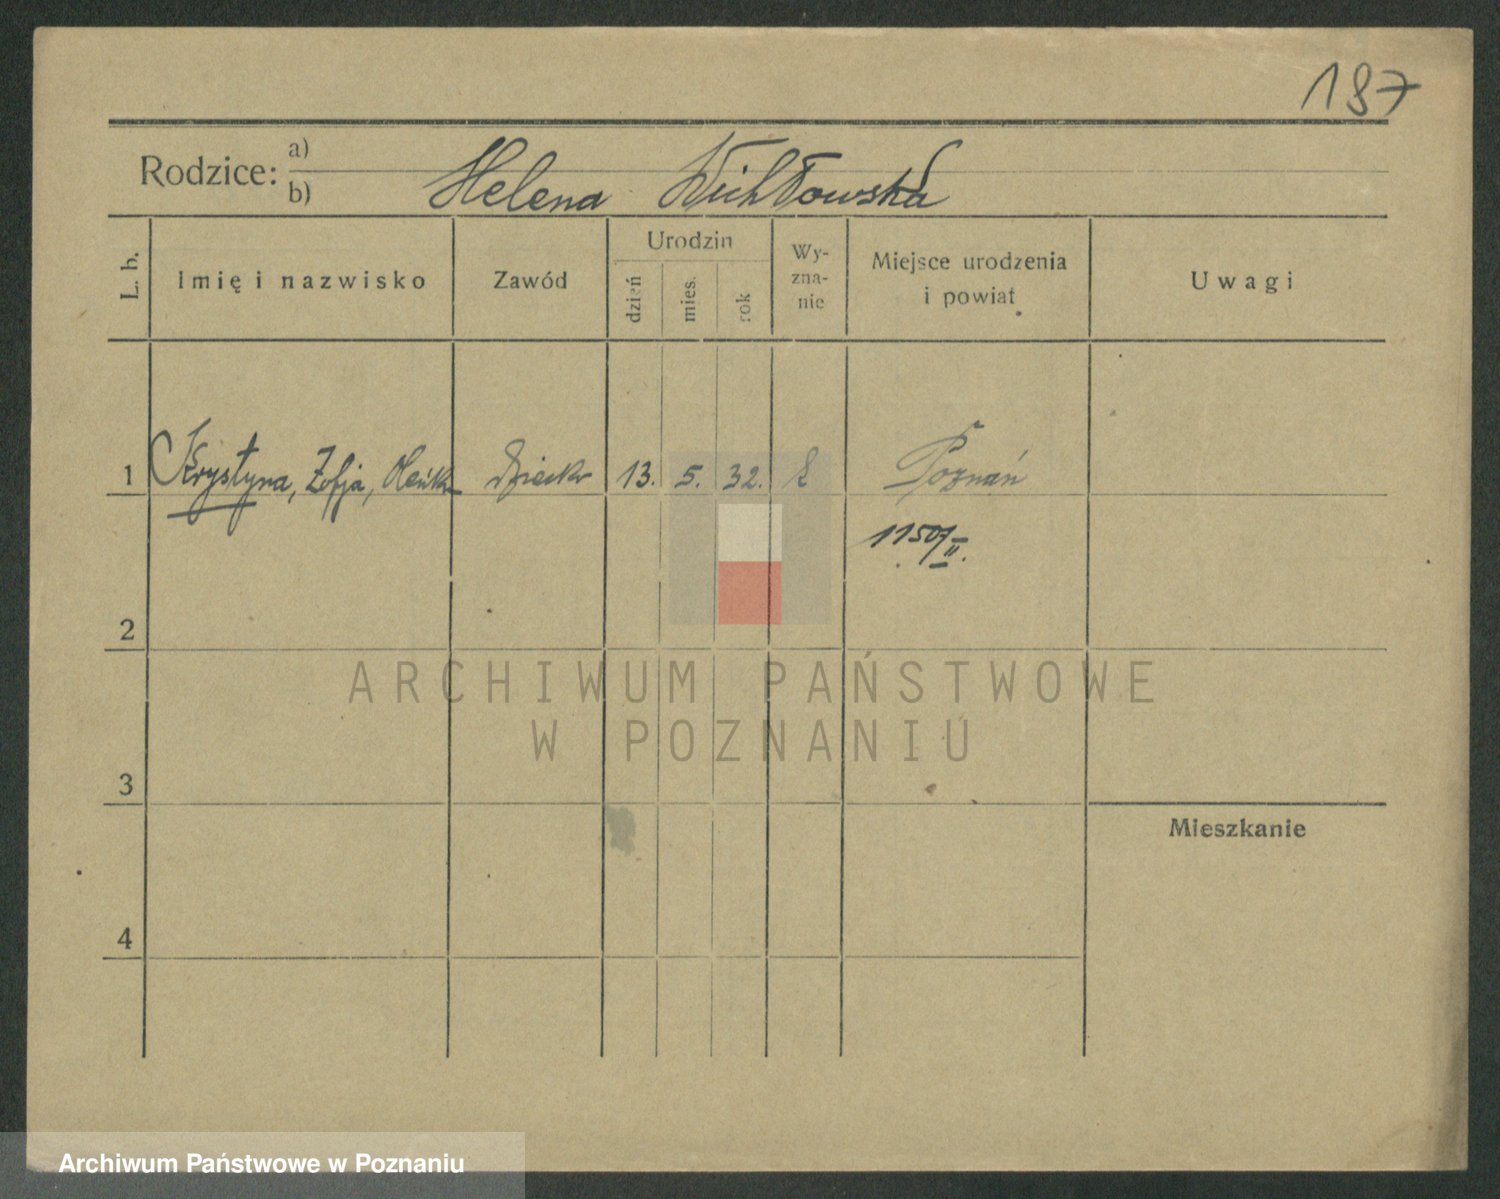 187
Rodzice:
a)
b) Helena Wichłowska
L. b.
Imię i nazwisko
Zawód
Urodzin
dzień
mies.
rok
Wy-
zna-
nie
Miejsce urodzenia
i powiat
Uwagi
1 Krystyna, Zofja, dziecko 13. 5. 32. Poznań
1150/II.
2
3
4
Mieszkanie
ARCHIWUM PAŃSTWOWE
W POZNANIU
Archiwum Państwowe w Poznaniu